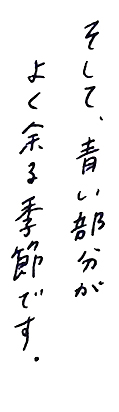 そして、青い部分が
よく余る季節です.